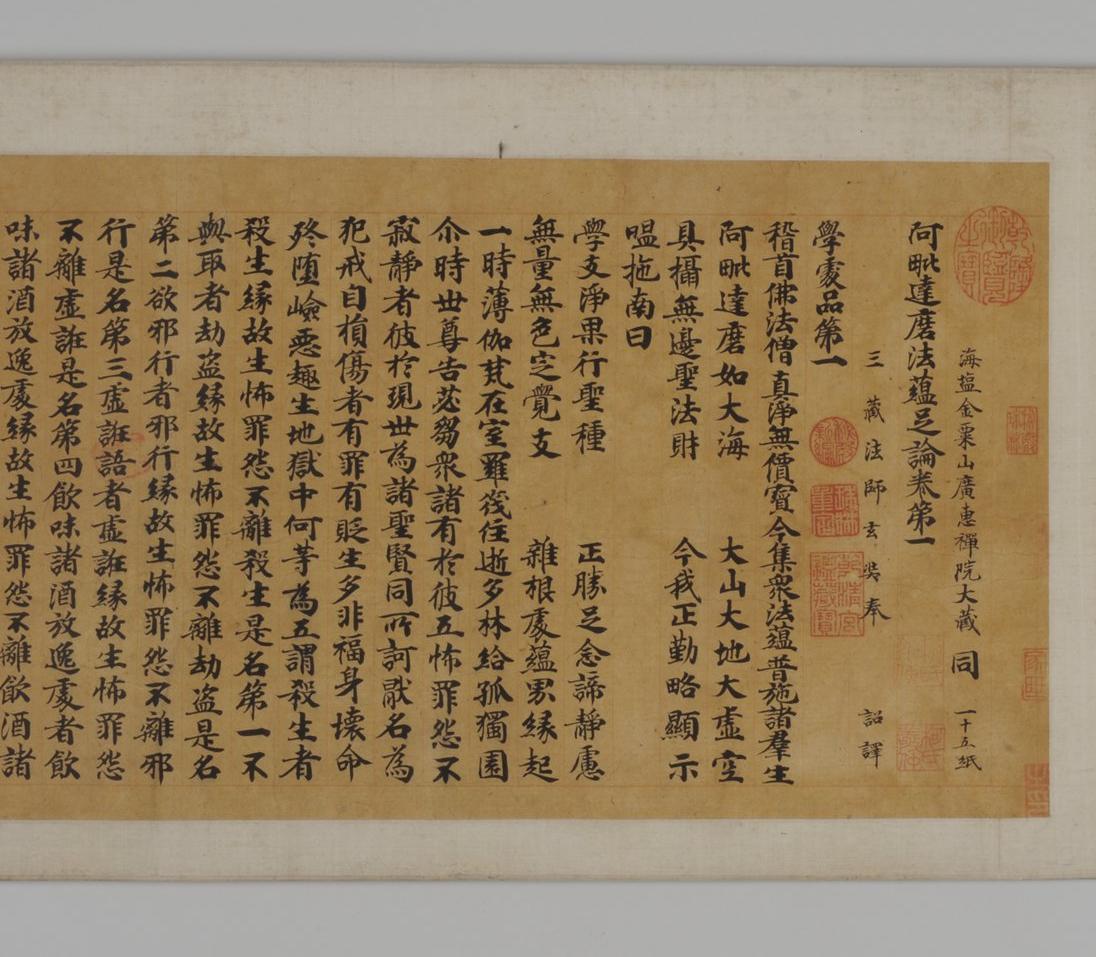 海塩金粟山廣惠禪院大藏 同 一十五紙
阿毗達磨法蘊足論卷第一
三藏法師玄奘奉 詔譯
學處品第一
稽首佛法僧真淨無價寶今集衆法蘊普施諸羣生
阿毗達磨如大海 大山大地大虛空
具攝無邊聖法財 今我正勤略顯示
嗢拖南曰
學支淨果行聖種 正勝足念諦靜慮
無量無色定覺支 雜根處蘊界緣起
一時薄伽梵在室羅筏住逝多林給孤獨園
尒時世尊告苾芻衆諸有於彼五怖罪怨不
寂靜者彼於現世為諸聖賢同所訶猒名為
犯戒自損傷者有罪有貶生多非福身壞命
終墮嶮惡趣生地獄中何等為五謂殺生者
殺生緣故生怖罪怨不離殺生是名第一不
與取者劫盜緣故生怖罪怨不離劫盜是名
第二欲邪行者邪行緣故生怖罪怨不離邪
行是名第三虛誑語者虛誑緣故生怖罪怨
不離虛誑是名第四飲味諸酒放逸處者飲
味諸酒放逸處緣故生怖罪怨不離飲酒諸
乾隆御覽之寶
乾清宮鑒藏寶